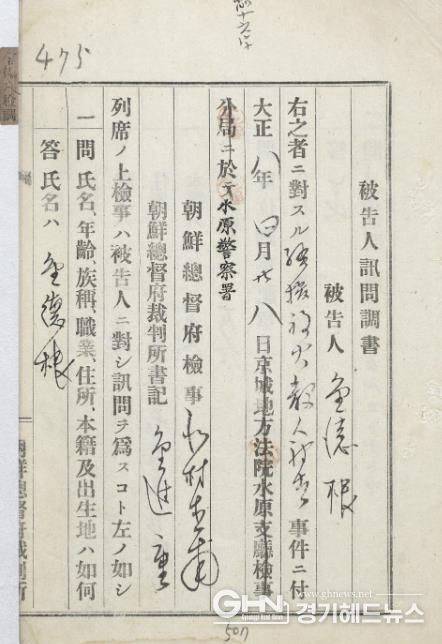 475
被告人訊問調書
被告人 金徳根
右之者ニ對スル騷擾放火殺人 事件ニ付
大正八年四月廿八日京城地方法院水原支廳檢事
分局ニ於テ水原警察署
朝鮮總督府檢事
朝鮮總督府裁判所書記
列席ノ上檢事ハ被告人ニ對シ訊問ヲ爲スコト左ノ如シ
一問 氏名、年齡、族稱、職業、住所、本籍及出生地ハ如何
答 氏名ハ 金徳根
朝鮮總督府裁判所
507
www.ghnews.net
GHN 경기헤드뉴스